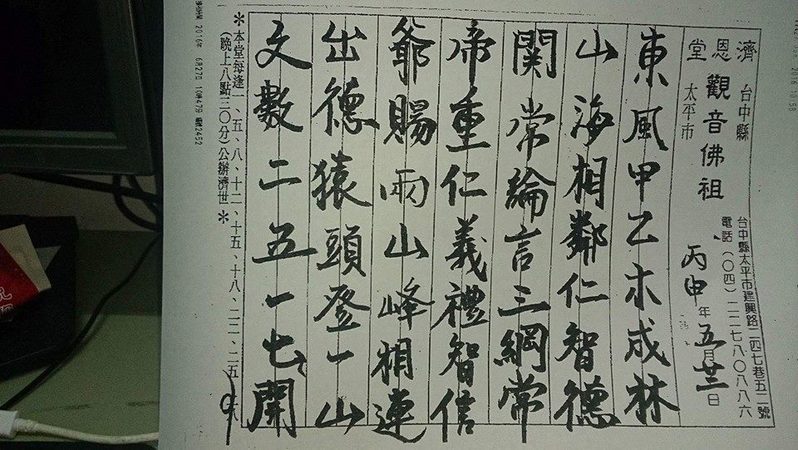 濟恩堂
台中縣太平市
觀音佛祖
台中縣太平市建興路二四七巷五二號
電話(〇四)二二七八〇八八六
丙申年五月廿三日
東風甲乙木成林
山海相鄰仁智德
関常論言三綱常
帝重仁義禮智信
爺賜兩山峰相連
出德猿頭登一山
文數二五一七開
*本堂每逢一、五、八、十二、十五、十八、二二、二五、
(晚上八點三〇分)公辦濟世*
2016年 6月27日 10時47分